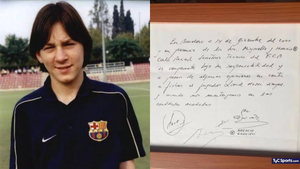 En Barcelona, a 14 de diciembre del 2000 y
en presencia de los Srs. Minguella y Horacio
Carles Rexach, Director Técnico del F.C.B.
se compromete bajo su responsabilidad y
a pesar de algunas opiniones en contra
a fichar al jugador Lionel Messi siempre
y cuando nos mantengamos en las
cantidades acordadas.
TyCSports.com